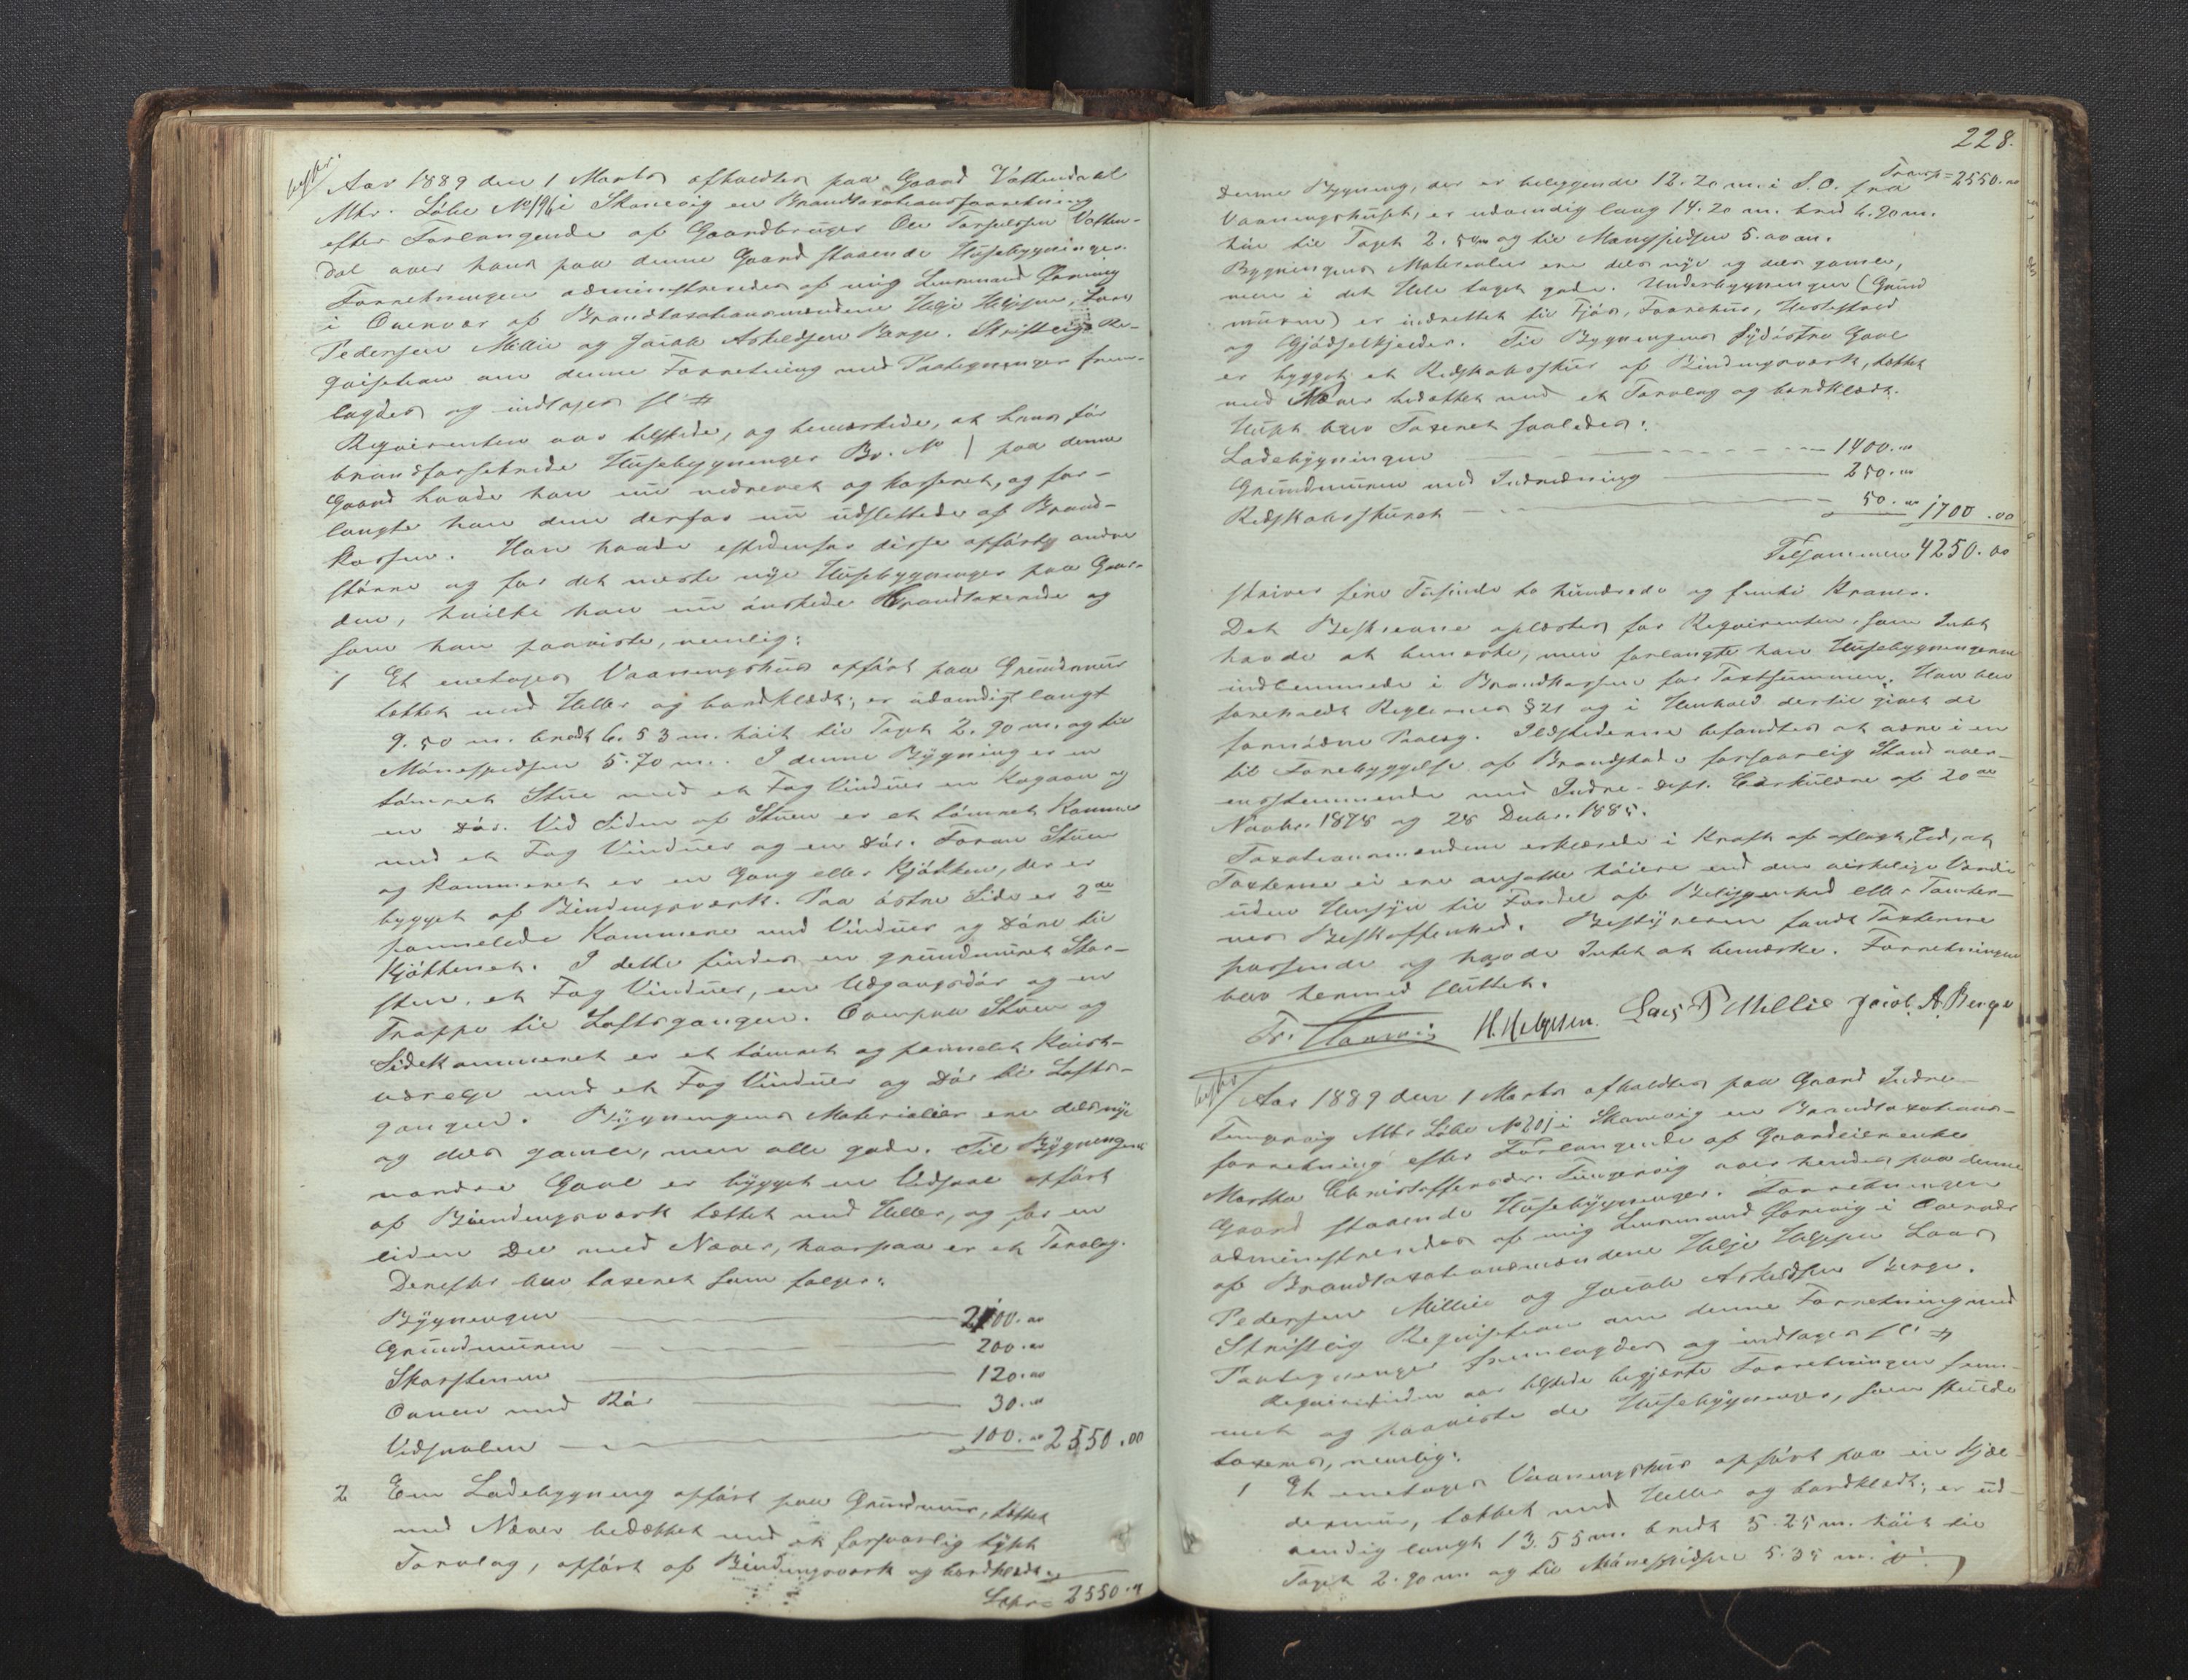 Aar 1889 den 1 Marts afholdtes paa Gaard Vattendal
Mtr. Løbe No 196 i Skonevig en Brandtaxationsforretning
efter Forlangende af Gaardbruger Ole Torjeldsen Vatten-
dal over hans paa denne Gaard staaende Husebygninger.
Forretningen administreredes af mig Lensmand
i Overvær af Brandtaxationsmændene Helje Heljesen, Lars
Pedersen Millie og Jacob Askeldsen Berge. Skriftlig Re-
qvisition om denne Forretning med Paategninger frem-
lagdes og indtages sl. #
Reqvirenten var tilstede, og bemærkede, at hans før
brandforsikrede Husebygninger Br. No 1 paa denne
Gaard havde han nu nedrevet og kasseret, og for-
langte han dem derfor nu udslettede af Brand-
kassen. Han havde istedenfor disse opført andre
større og for det meste nye Husebygninger paa Gaar-
den, hvilke han nu ønskede Brandtaxerede og
som han paaviste, nemlig:
1 Et enetages Vaaningshus opført paa Grundmur
tættet med Heller og bordklædt; er udvendigt langt
9.50 m. bredt 6.53 m. høit til Taget 2.90 m. og til
Mønespidsen 5.70 m. I denne Bygning er en
tømret Stue med et Fag Vinduer en Kogeovn og
en Dør. Ved Siden af Stuen er et tømret Kammer
med et Fag Vinduer og en Dør. Foran Stuen
og Kammeret er en Gang eller Kjøkken, der er
bygget af Bindingsværk. Paa østre Side er 2de
pannelede Kammere med Vinduer og Døre til
Kjøkkenet. I dette findes en grundmuret Skor-
sten, et Fag Vinduer, en Udgangsdør og en
Trappe til Loftsgangen. Ovenpaa Stuen og
Sidekammeret er et tømret og pannelet Kvist-
værelse med et Fag Vinduer og Dør til Lofts-
gangen. Bygningens Materialier ere dels nye
og dels gamle, men alle gode. Til Bygningens
nordre Gavl er bygget en Vedsval opført
af Bindingsværk tættet med Heller, og for en
liden Del med Næver, hvorpaa er et Torvlag.
Derefter blev taxeret som følger:
Bygningen 2100.00
Grundmuren 200.00
Skorstenen 120.00
Ovnen med Rør 30.00
Vedsvalen 100.00 2550.00
2 En Ladebygning opført paa Grundmur, tættet
med Næver bedækket med et forsvarlig tykt
Torvlag, opført af Bindingsværk og bordklædt.
2550.00
228.
Transp= 2550.00
Denne Bygning, der er beliggende 12.20 m. i S.O. fra
Vaaningshuset, er udvendig lang 14.20 m. bred 6.90 m.
høi til Taget 2.50 m og til Mønespidsen 5.00 m.
Bygningens Materialier ere dels nye og dels gamle,
men i det Hele taget gode. Underbygningen (Grund
muren) er indrettet til Fjøs, Faarehus, Hestestald
og Gjødselkjelder. Til Bygningens sydøstre Gavl
er bygget et Redskabsskur af Bindingsværk, tættet
med Næver bedækket med et Torvlag og bordklædt.
Huset blev Taxeret saaledes:
Ladebygningen 1400.00
Grundmuren med Indredning 250.00
Redskabsskuret 50.00 1700.00
Tilsammen 4250.00
skriver fire Tusinde to hundrede og femti Kroner.
Det Beskrevne oplæstes for Reqvirenten, som Intet
havde at bemærke, men forlangte han Husebygningerne
indlemmede i Brandkassen for Taxtsummen. Han blev
foreholdt Reglernes § 21 og i Henhold dertil givet de
fornødne Paalæg. Ildstederne befandtes at være i en
til Forebyggelse af Brandskade forsvarlig Stand over-
ensstemmende med Indre-Dept. Cirkulære af 20de
Novbr. 1878 og 28 Decbr. 1885.
Taxationsmændene erklærede i Kraft af aflagt Ed, at
Taxterne ei ere ansatte høiere end den virkelige Værdi
uden Hensyn til Fordel af Beliggenhed eller Tomter-
nes Beskaffenhed. Bestyreren fandt Taxterne
passende og havde Intet at bemærke. Forretningen
blev hermed sluttet.
H. Helgesen. Lars P Millie Jacob. A. Berge
Aar 1889 den 1 Marts afholdtes paa Gaard Indre-
Tungesvig Mtr Løbe No 201 i Skonevig en Brandtaxations-
forretning efter Forlangende af Gaardeierenke
Martha Christoffersdtr. Tungesvig over hendes paa denne
Gaard staaende Husebygninger. Forretningen
administreredes af mig Lensmand i Overvær
af Brandtaxationsmændene Helje Heljesen Lars
Pedersen Millie og Jacob Askeldsen Berge.
Skriftlig Reqvisition om denne Forretning med
Paategninger fremlagdes og indtages sl. #
Reqvirentinden var tilstede begjærte Forretningen frem-
met og paaviste de Husebygninger, som skulde
taxeres, nemlig:
1 Et enetages Vaaningshus opført paa en Kjæl-
dermur, tættet med Heller og bordklædt; er ud-
vendig langt 13.55 m. bredt 5.25 m. høit til
Taget 2.90 m. og til Mønespidsen 5.35 m.